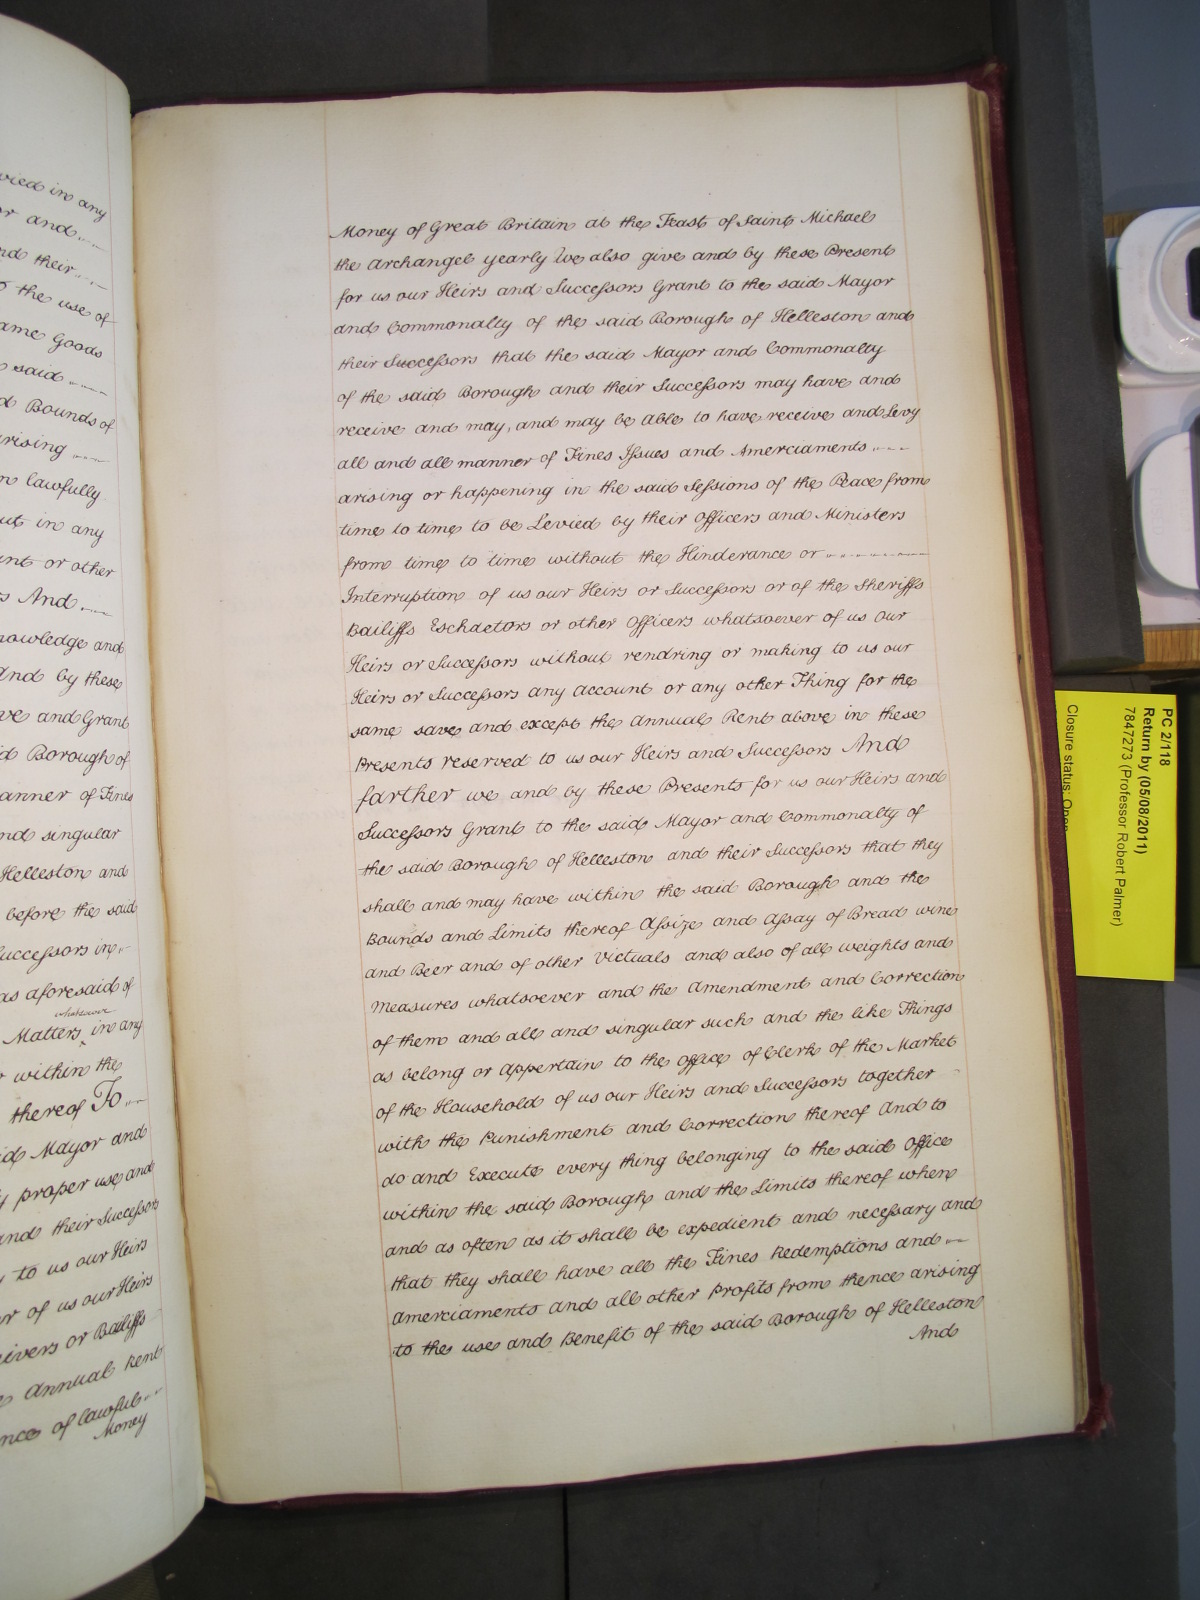 vied in any
or and
nd their
the use of
ame Goods
said
d Bounds of
rising
lawfully
ut in any
nt or other
s And
nowledge and
And by these
ve and Grant
d Borough of
anner of Fines
nd singular
Helleston and
before the said
uccessors in
as aforesaid of
whatsoever
Matters in any
within the
thereof To
id Mayor and
proper use and
and their Successors
to us our Heirs
or of us our Heirs
eivers or Bailiffs
Annual Rent
nce of lawful
Money
Money of Great Britain at the Feast of Saint Michael
the Archangel yearly We also give and by these Present
for us our Heirs and Successors Grant to the said Mayor
and Commonalty of the said Borough of Helleston and
their Successors that the said Mayor and Commonalty
of the said Borough and their Successors may have and
receive and may, and may be Able to have receive and Levy
all and all manner of Fines Issues and Amerciaments
arising or happening in the said Sessions of the Peace from
time to time to be Levied by their Officers and Ministers
from time to time without the Hinderance or
Interruption of us our Heirs or Successors or of the Sheriffs
Bailiffs Escheators or other Officers whatsoever of us Our
Heirs or Successors without rendring or making to us our
Heirs or Successors any Account or any other Thing for the
same save and except the Annual Rent above in these
Presents reserved to us our Heirs and Successors And
farther we and by these Presents for us our Heirs and
Successors Grant to the said Mayor and Commonalty of
the said Borough of Helleston and their Successors that they
shall and may have within the said Borough and the
Bounds and Limits thereof Assize and Assay of Bread wine
and Beer and of other Victuals and also of all weights and
Measures whatsoever and the Amendment and Correction
of them and all and singular such and the like Things
as belong or Appertain to the office of Clerk of the Market
of the Household of us our Heirs and Successors together
with the Punishment and Correction thereof And to
do and Execute every thing belonging to the said Office
within the said Borough and the Limits thereof when
and as often as it shall be expedient and necessary and
that they shall have all the Fines Redemptions and
Amerciaments and all other Profits from thence arising
to the use and Benefit of the said Borough of Helleston
And
PC 2/118
Return by (05/08/2011)
7847273 (Professor Robert Palmer)
Closure status: Open